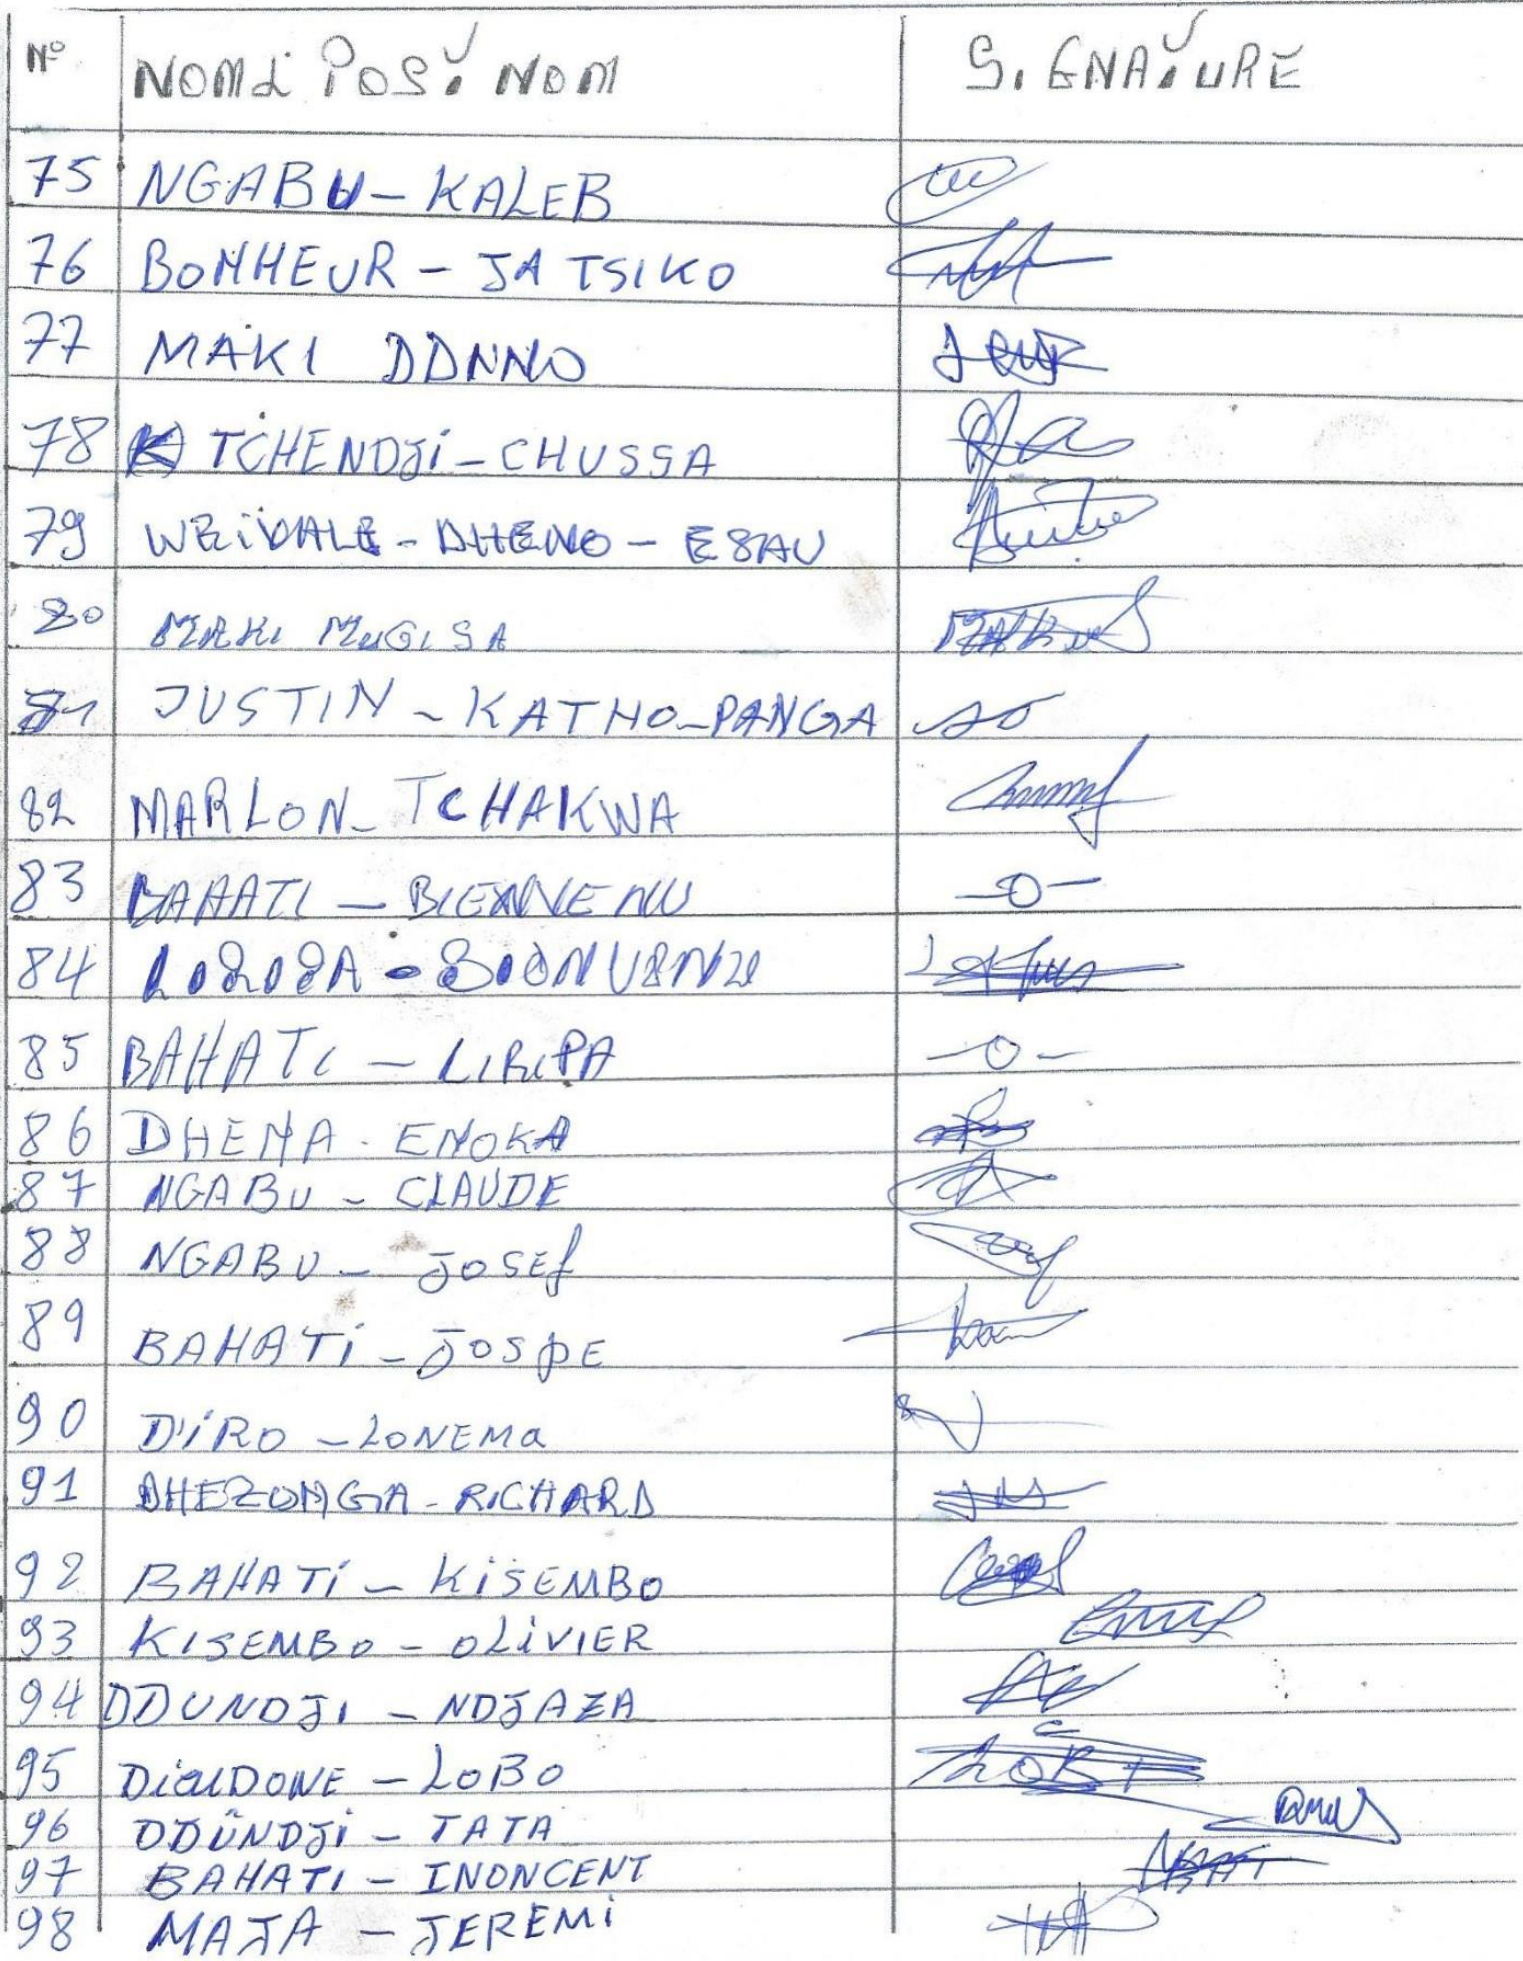 N° NOM & POST NOM SIGNATURE
75 NGABU - KALEB
76 BONHEUR - JATSIKO
77 MAKI DDNNO
78 TCHENDJi - CHUSSA
79 - DHENO - ESAU
80 MAKI MUGISA
81 JUSTIN - KATHO - PANGA
82 MARLON - TCHAKWA
83 BAHATI - BIENVENU
84
85 BAHATI - LIRIPA
86 DHENA - ENOKA
87 NGABU - CLAUDE
88 NGABU - JOSEf
89 BAHATi - JOSpE
90 D'iRO - LONEMa
91 DHEZONGA - RICHARD
92 BAHATi - KiSEMBO
93 KISEMBO - OLiVIER
94 DDUNDJI - NDJAZA
95 DieuDONE - LOBO
96 DDÛNDJi - TATA
97 BAHATI - INONCENT
98 MAJA - JEREMI